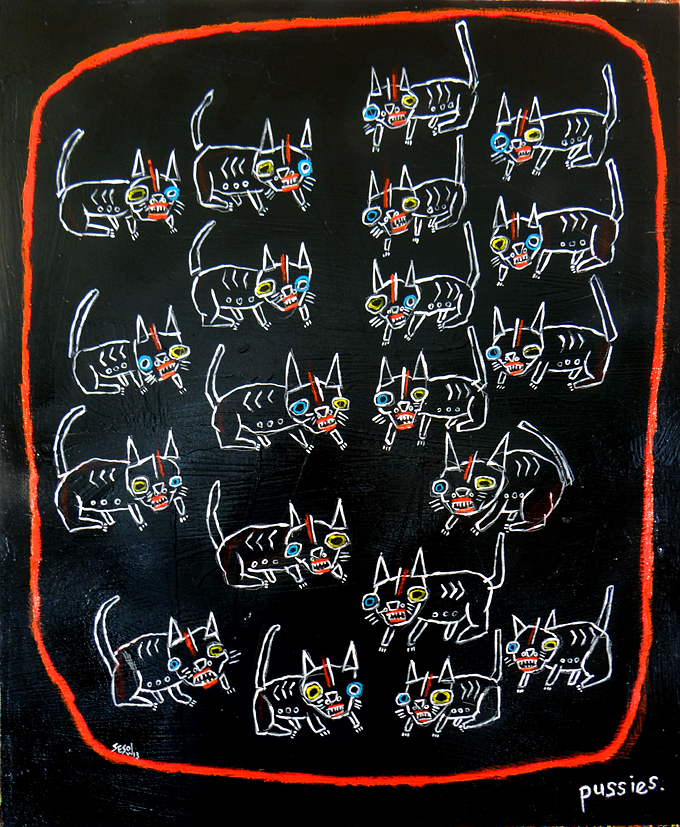 SESOL
13
pussies.